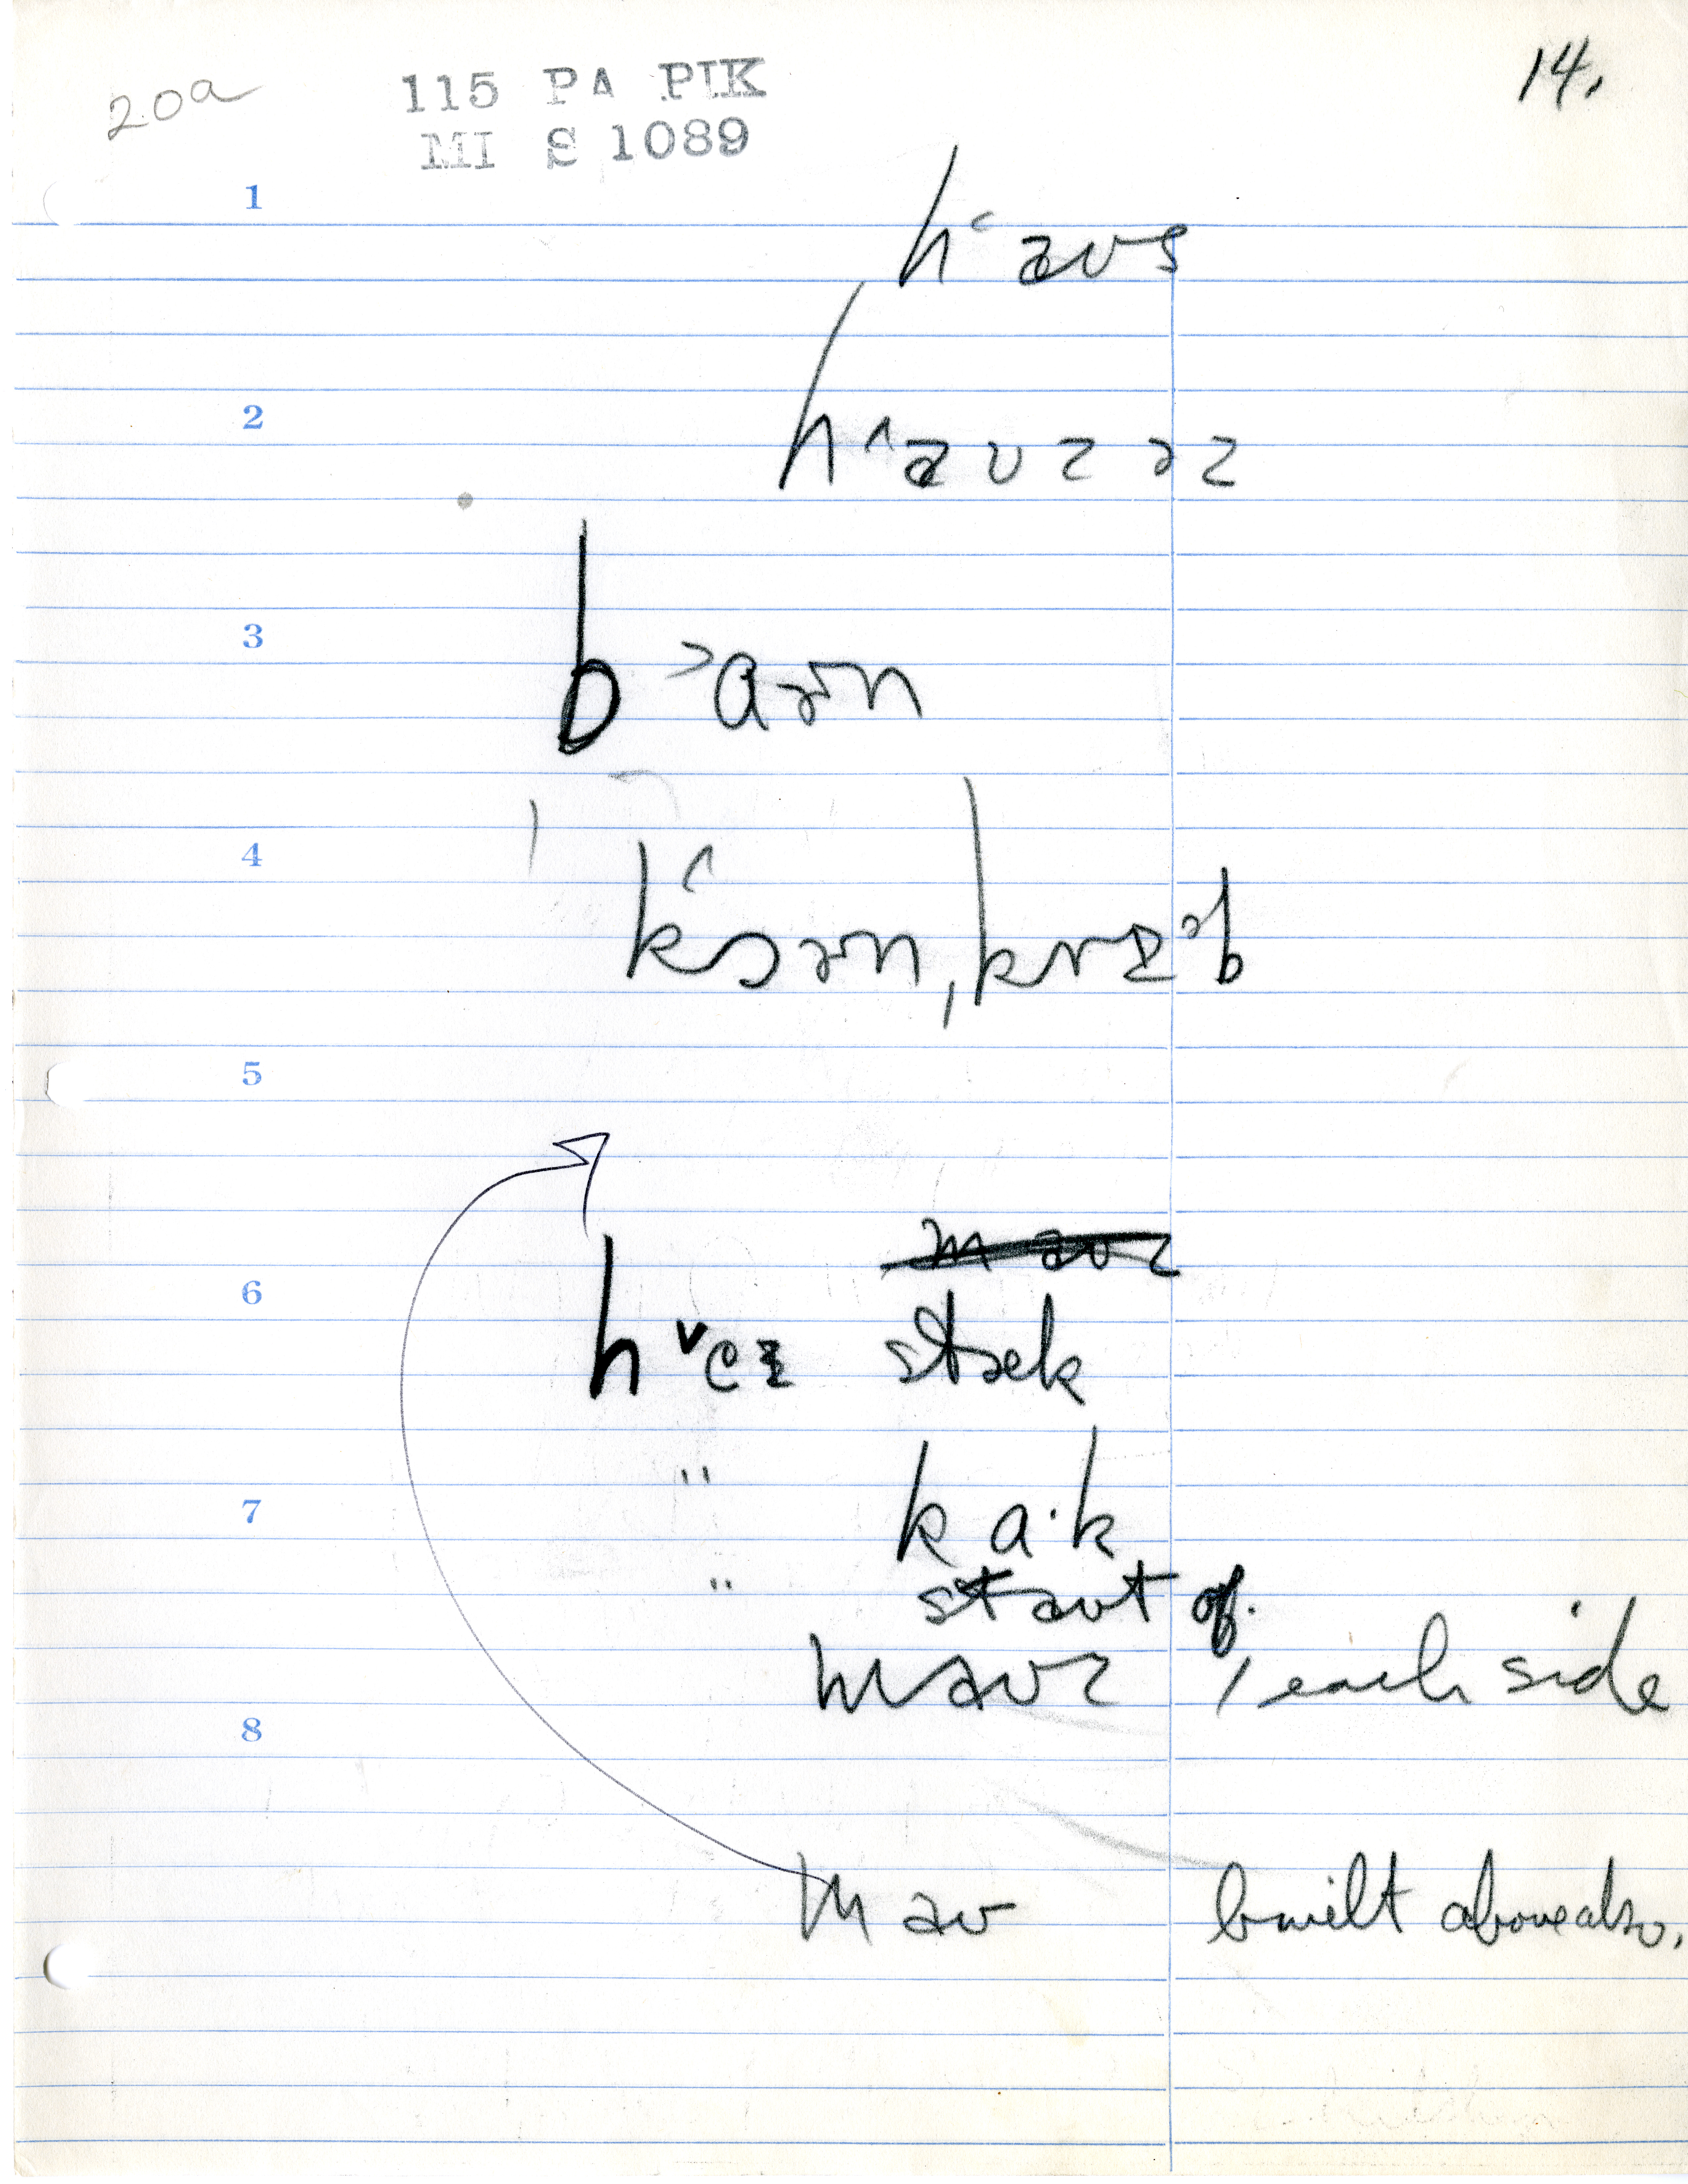 20a
115 PA PIK
MI S 1089
14.
1
h˂aʊs
2
h˄aʊzəz
3
b˃aɚn
4
k˄ɔɚn, krɪb
5
maʊz
6
h˅eɪ stæk
7
" ka·k
" staʊt of.
maʊz , each side
8
maʊ built above also.